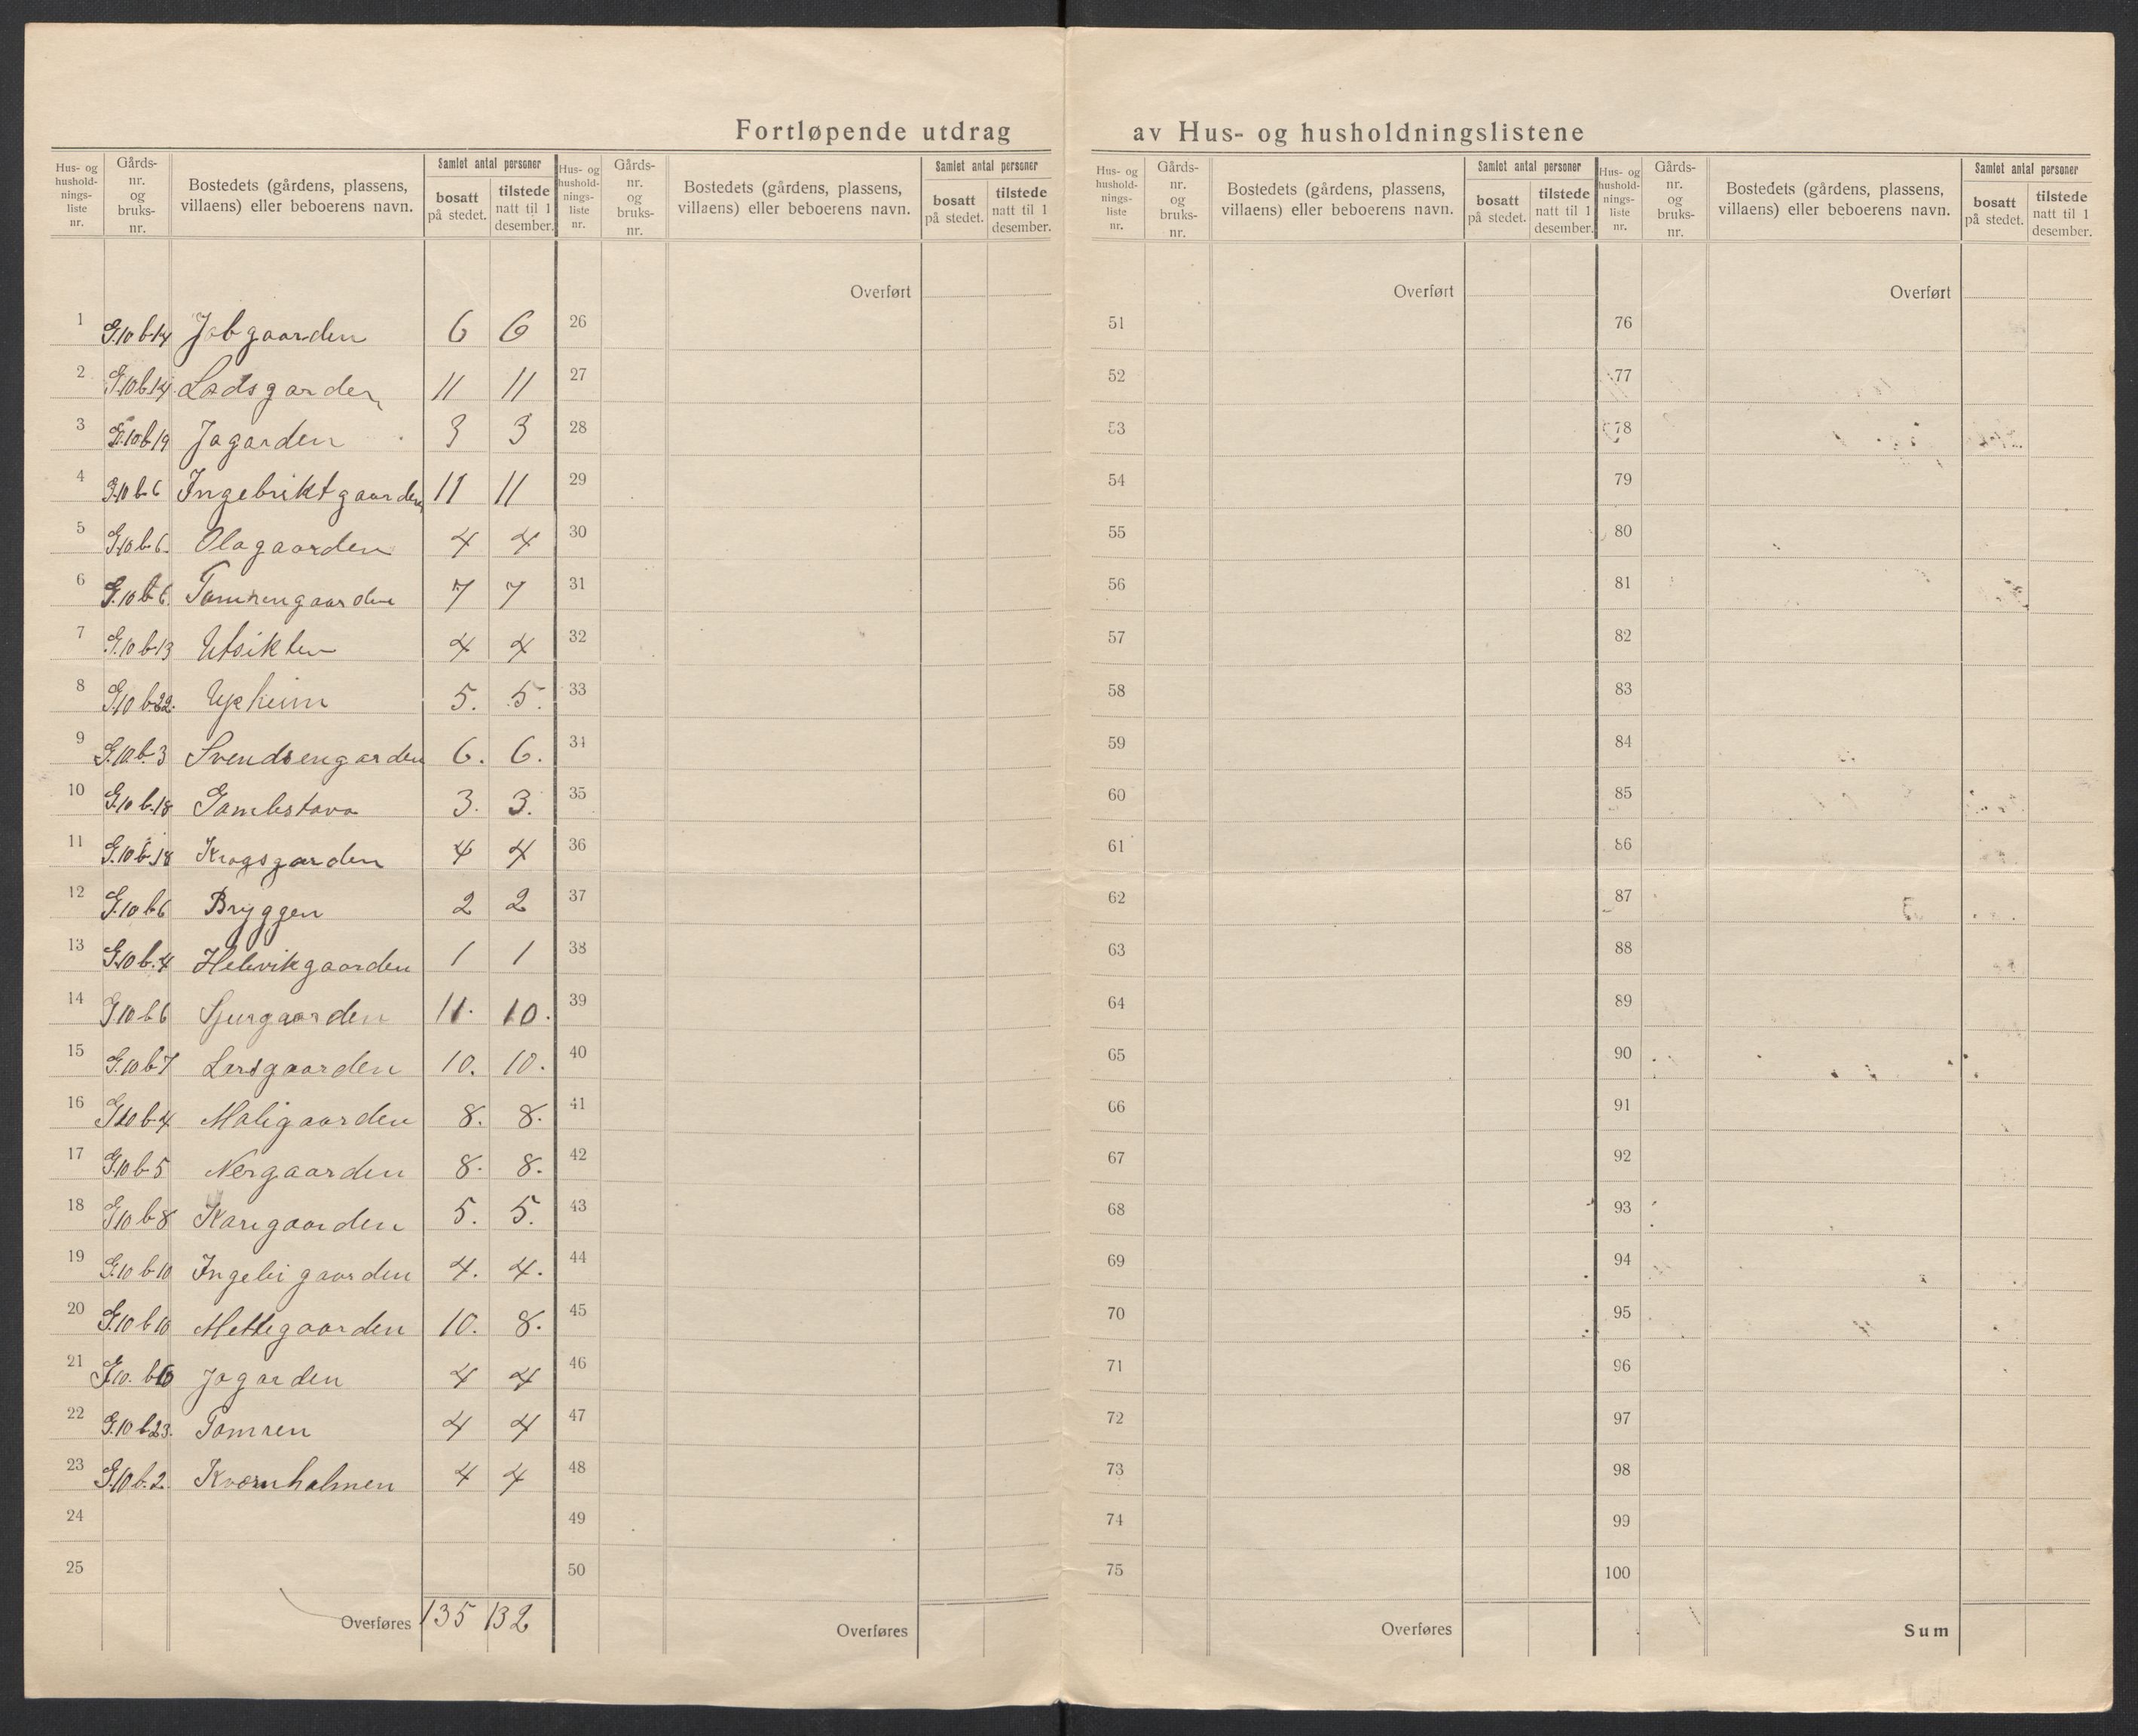 Fortløpende utdrag av Hus- og husholdningslistene
Hus- og hushold-nings-liste nr. Gårds-nr. og bruks-nr. Bostedets (gårdens, plassens, villaens) eller beboerens navn. Samlet antal personer bosatt på stedet. tilstede natt til 1 desember.
1 G.10 b.14 Jobgaarden 6 6
2 G.10 b.14 Ladsgarden 11 11
3 G.10.b.19 Jagarden 3 3
4 G.10 b.6 Ingebriktgaarden 11 11
5 G.10 b.6. Olagaarden 4 4
6 G.10 b.6. Tomrengaarden 7 7
7 G.10 b.13 Utsikten 4 4
8 G.10 b.22. Upheim 5. 5.
9 G.10.b.3 Svendsengarden 6. 6.
10 G.10 b.18 Gamlestova 3. 3.
11 G.10 b.18 Krogsgarden 4 4
12 G.10 b.6 Bryggen 2 2
13 G.10 b.4 Helevikgaarden 1 1
14 G.10 b.6 Sjurgaarden 11. 10.
15 G.10 b.7 Larsgaarden 10. 10.
16 G.10 b.4 Maligaarden 8. 8.
17 G.10 b.5 Nergaarden 8. 8.
18 G.10 b.8 Karigaarden 5. 5.
19 G.10 b.10 Ingebigaarden 4. 4.
20 G.10 b.10 Mettegaarden 10. 8.
21 G.10. b.10 Jogarden 4 4
22 G.10 b.23. Tomren 4 4
23 G.10 b.2. Kvernholmen 4 4
24
25
Overføres 135 132
Hus- og hushold-nings-liste nr. Gårds-nr. og bruks-nr. Bostedets (gårdens, plassens, villaens) eller beboerens navn. Samlet antal personer bosatt på stedet. tilstede natt til 1 desember.
Overført
26
27
28
29
30
31
32
33
34
35
36
37
38
39
40
41
42
43
44
45
46
47
48
49
50
Overføres
Hus- og hushold-nings-liste nr. Gårds-nr. og bruks-nr. Bostedets (gårdens, plassens, villaens) eller beboerens navn. Samlet antal personer bosatt på stedet. tilstede natt til 1 desember.
Overført
51
52
53
54
55
56
57
58
59
60
61
62
63
64
65
66
67
68
69
70
71
72
73
74
75
Overføres
Hus- og hushold-nings-liste nr. Gårds-nr. og bruks-nr. Bostedets (gårdens, plassens, villaens) eller beboerens navn. Samlet antal personer bosatt på stedet. tilstede natt til 1 desember.
Overført
76
77
78
79
80
81
82
83
84
85
86
87
88
89
90
91
92
93
94
95
96
97
98
99
100
Sum